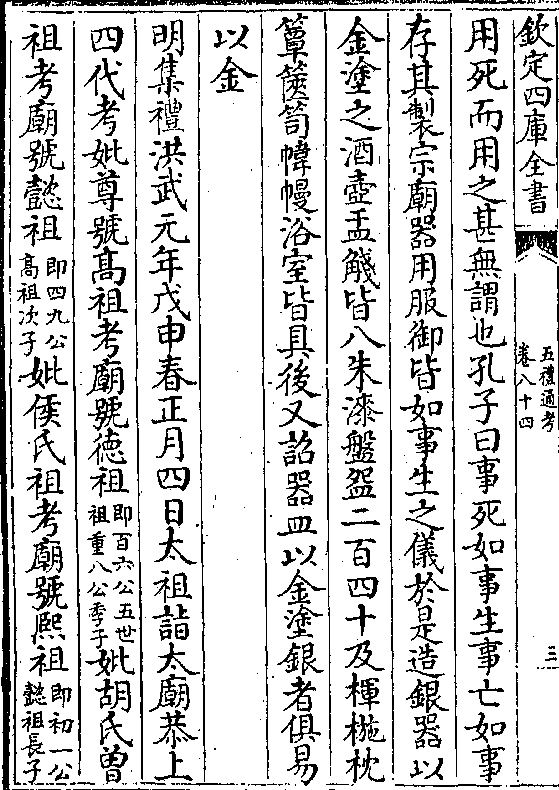 欽定四庫全書
五禮通考
卷八十四
三
用死而用之甚無謂也孔子曰事死如事生事亡如事
存其製宗廟器用服御皆如事生之儀於是造銀器以
金塗之酒壺盂觴皆八朱漆盤盌二百四十及楎椸枕
簟篋笥幃幔浴室皆具後又詔器皿以金塗銀者俱易
以金
明集禮洪武元年戊申春正月四日太祖詣太廟恭上
四代考妣尊號髙祖考廟號德祖即百六公五世祖重八公季子妣胡氏曾
祖考廟號懿祖即四九公髙祖次子妣侯氏祖考廟號熙祖即初一公懿祖長子